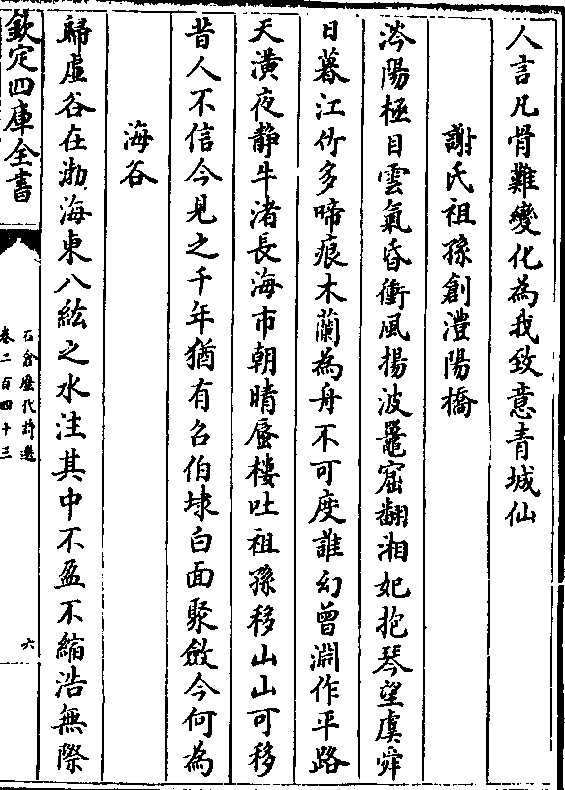 人言凡骨難變化為我致意青城仙
謝氏祖孫創澧陽橋
涔陽極目雲氣昏衝風揚波鼉窟翻湘妃抱琴望虞舜
日暮江竹多啼痕木蘭為舟不可度誰幻曾淵作平路
天潢夜靜牛渚長海市朝晴蜃樓吐祖孫移山山可移
昔人不信今見之千年猶有召伯埭白面聚斂今何為
海谷
歸虛谷在渤海東八紘之水注其中不盈不縮浩無際
欽定四庫全書
石倉歷代詩選
卷二百四十三
六